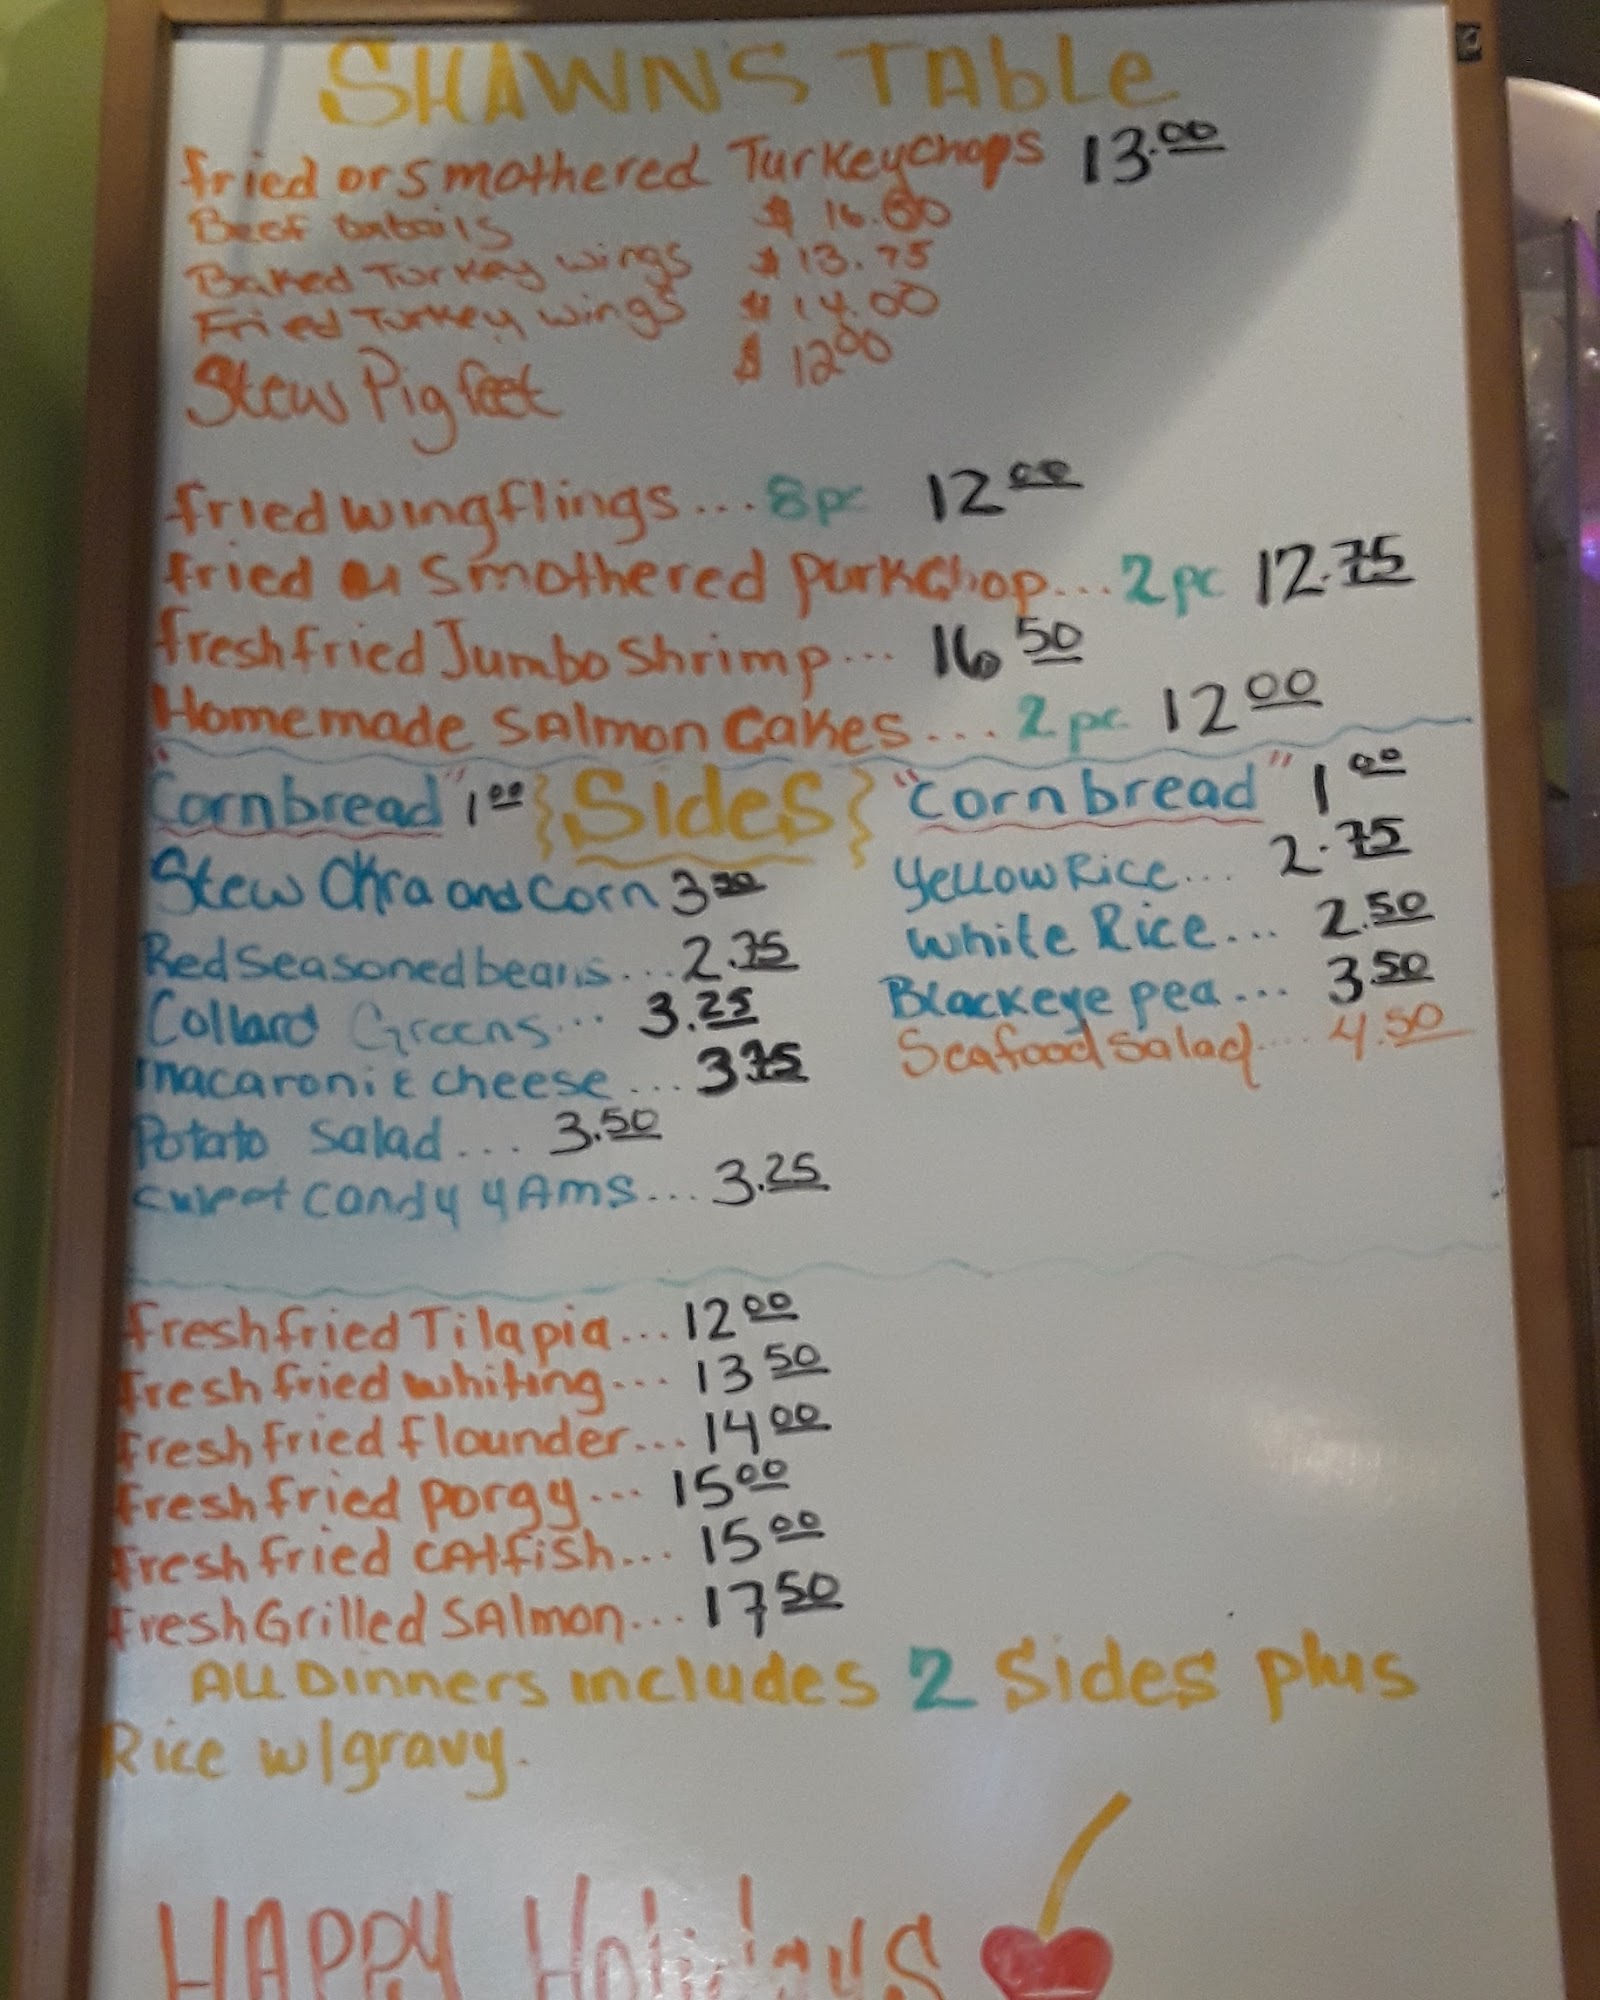 SHAWNS TABLE
fried or smothered Turkeychops 13.00
Beef $ 16.00
Baked Turkey wings $ 13.75
Fried Turkey wings $ 14.00
Stew Pig feet $ 12 00
fried wing flings... 8pc 12 00
fried or smothered porkchop... 2pc 12.75
fresh fried Jumbo Shrimp... 16 50
Homemade Salmon Cakes... 2pc 12 00
"Cornbread" 1 00 {Sides} "Cornbread" 1 00
Stew Okra and Corn 3
Red Seasoned beans... 2.75
Collard Greens... 3.25
macaroni & cheese... 3 75
Potato Salad... 3.50
Sweet Candy yAms... 3.25
Yellow Rice... 2.75
White Rice... 2.50
Blackeye pea... 3.50
Seafood Salad.... 4.50
fresh fried Tilapia... 12 00
fresh fried whiting... 13 50
fresh fried flounder... 14 00
fresh fried Porgy... 15 00
fresh fried CAtfish... 15 00
Fresh Grilled SAlmon... 17 50
All Dinners includes 2 Sides plus
Rice w/gravy.
HAPPY Holidays